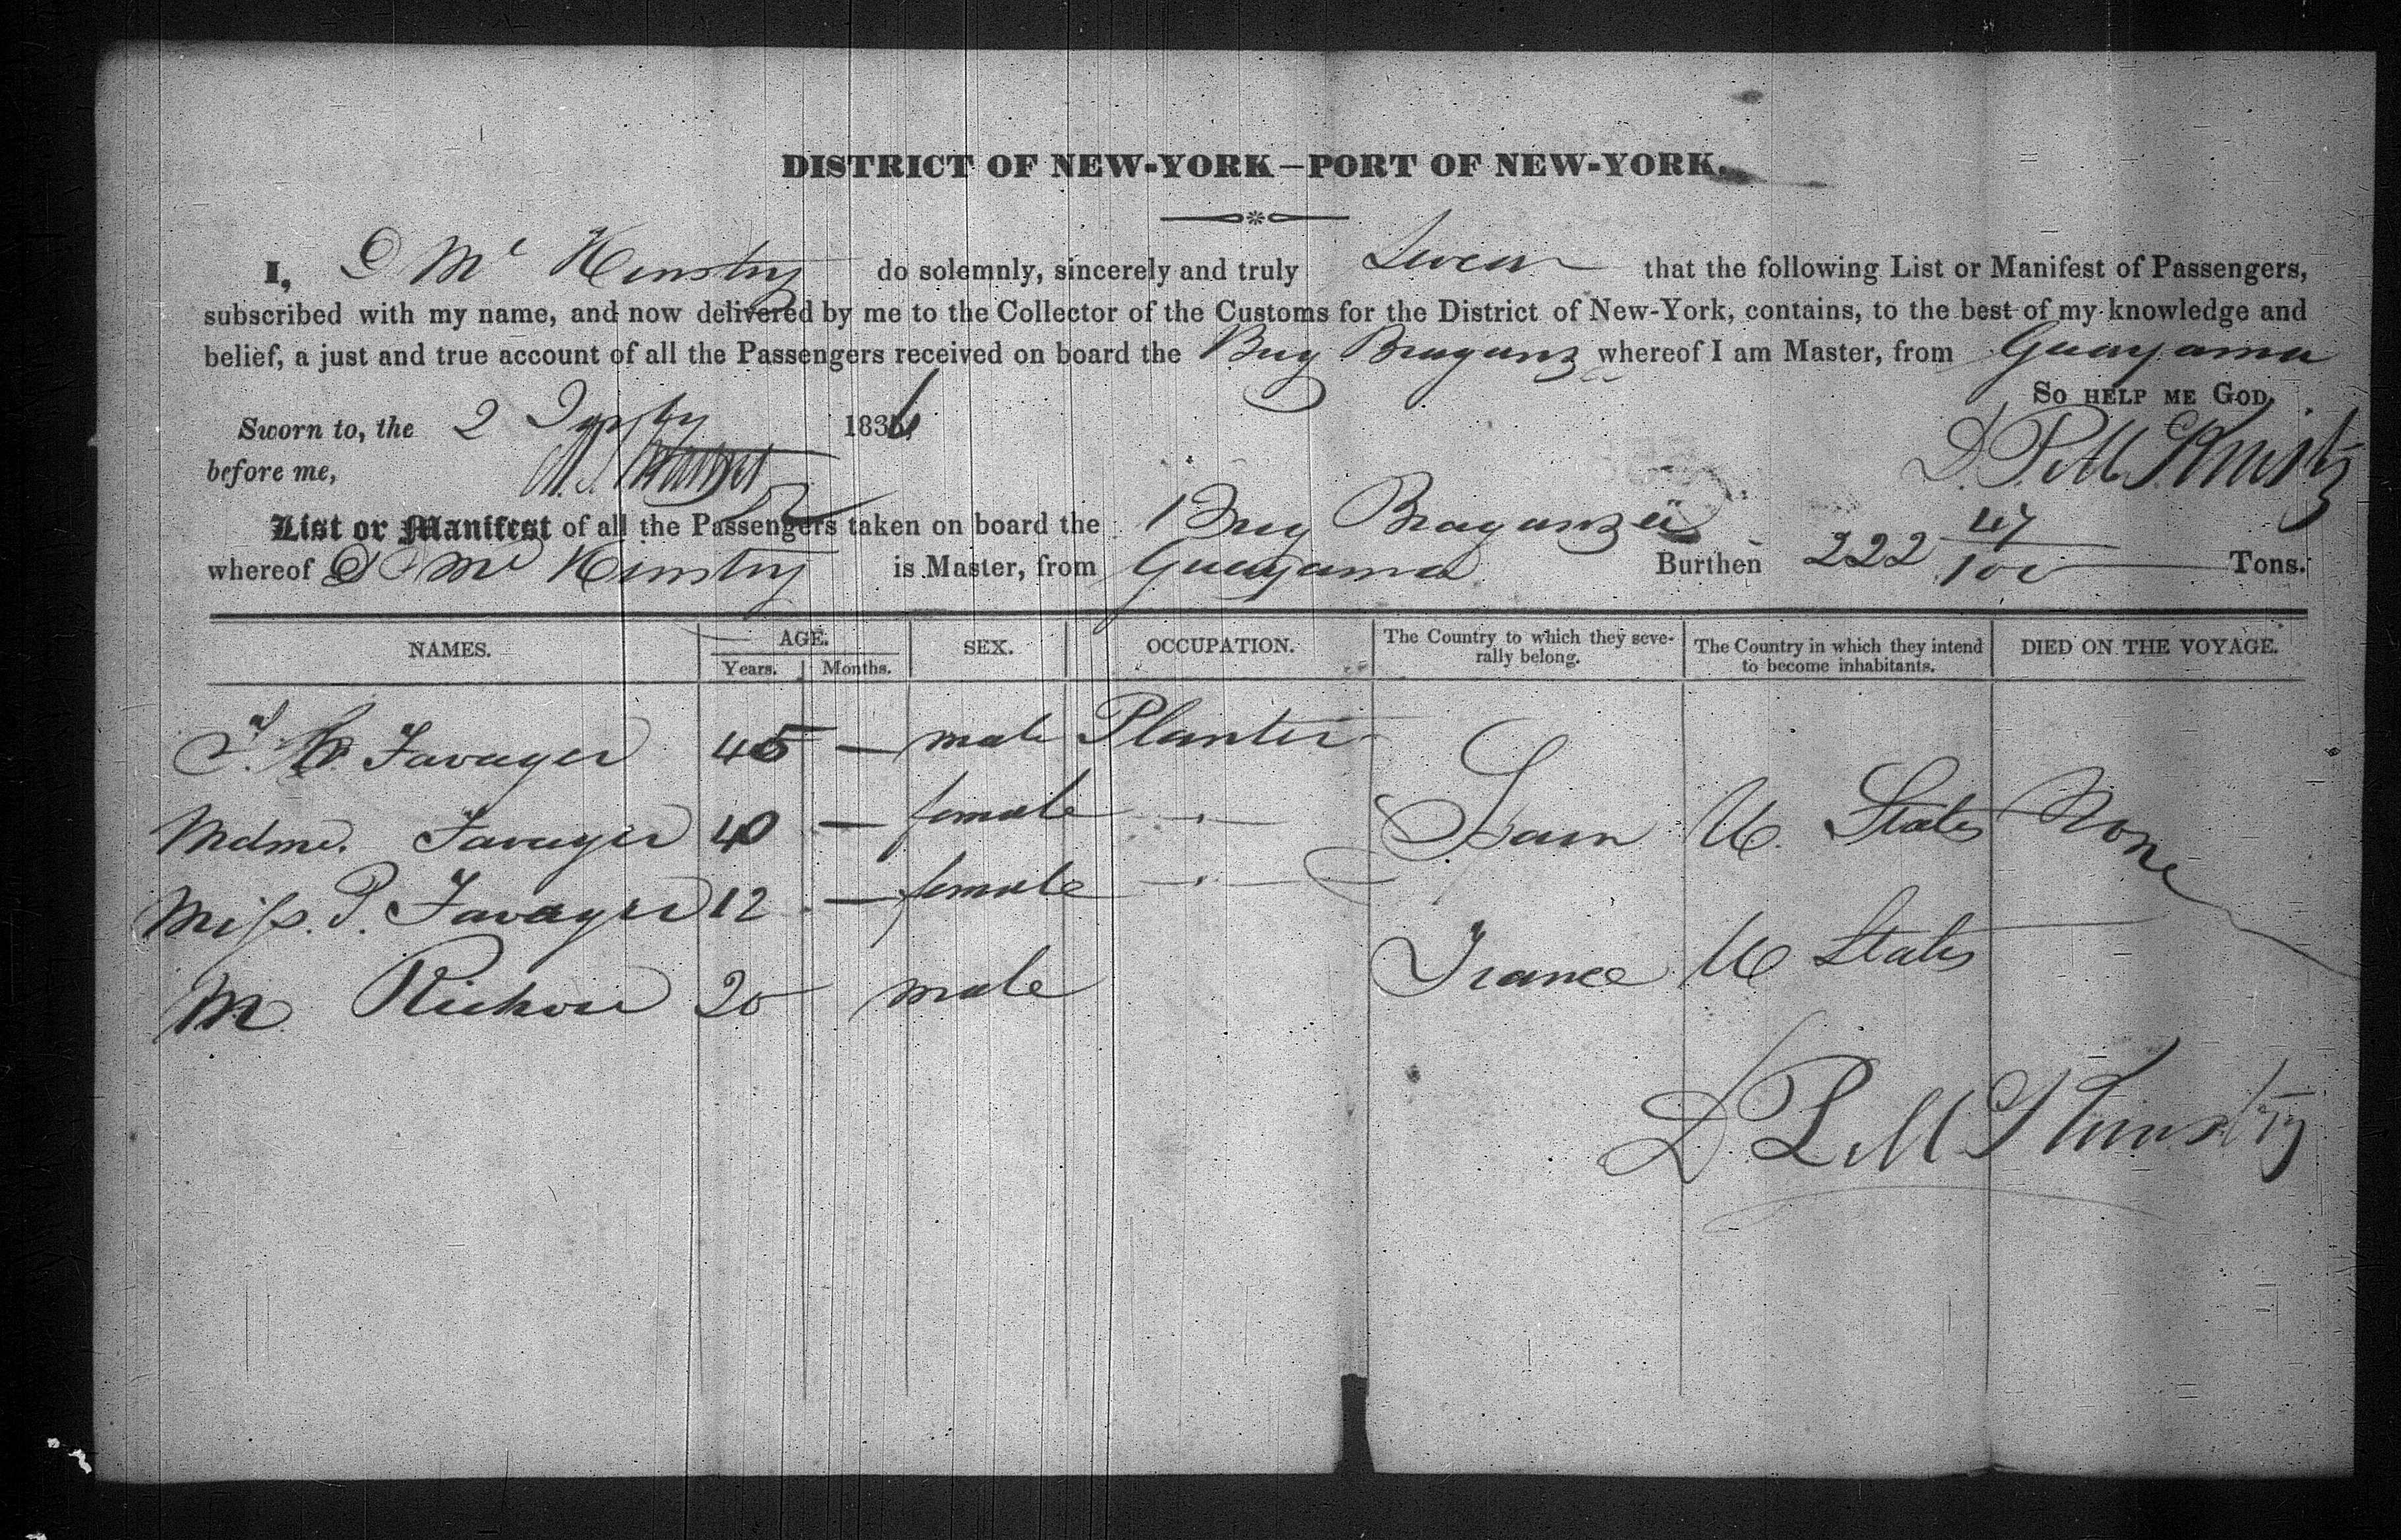 DISTRICT OF NEW-YORK—PORT OF NEW-YORK.
I, D Mc Kinstry do solemnly, sincerely and truly Swear that the following List or Manifest of Passengers,
subscribed with my name, and now delivered by me to the Collector of the Customs for the District of New-York, contains, to the best of my knowledge and
belief, a just and true account of all the Passengers received on board the Brig Braganza whereof I am Master, from Guayama
So HELP ME GOD.
Sworn to, the 2 1836
before me,
D. P. McKinstry
List or Manifest of all the Passengers taken on board the Brig Braganza
whereof D Mc Kinstry is Master, from Guayama Burthen 222 47/100 Tons.
NAMES. AGE. SEX. OCCUPATION. The Country to which they seve- The Country in which they intend DIED ON THE VOYAGE.
Years. Months. rally belong. to become inhabitants.
Favager 45 — male Planter
Mdme. Favager 40 — female " Spain U. States None
Miss. P. Favager 12 — female "
M. 20 male France U States
D P McKinstry